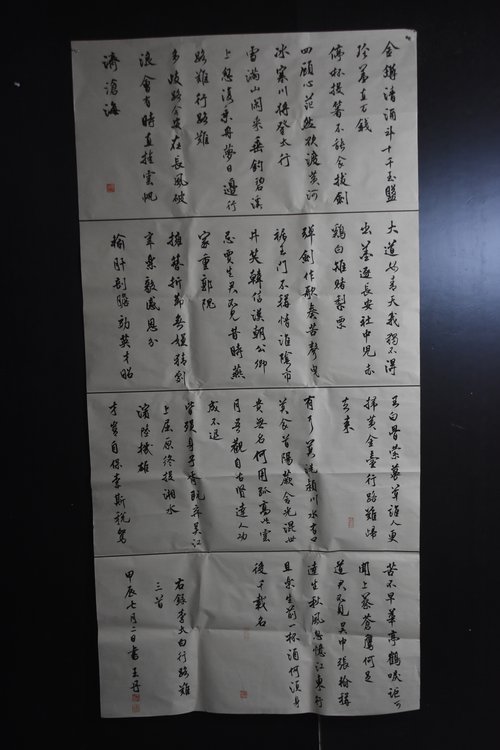 金樽清酒斗十千玉盤
珍羞直万錢
停杯投箸不能食拔劍
四顧心茫然欲渡黃河
冰塞川將登太行
雪滿山閑來垂釣碧溪
上忽復乘舟夢日邊行
路難行路難
多歧路今安在長風破
浪會有時直挂雲帆
濟滄海
大道如青天我獨不得
出羞逐長安社中兒赤
鷄白雉賭梨栗
彈劍作歌奏苦聲曳
裾王門不稱情淮陰市
井笑韓信漢朝公卿
忌賈生君不見昔時燕
家重郭隗
擁篲折節無嫌猜劇
辛樂毅感恩分
輸肝剖膽効英才昭
王白骨縈蔓草誰人更
掃黃金臺行路難歸
去來
有耳莫洗潁川水有口
莫食首陽蕨含光混世
貴無名何用孤高比雲
月吾觀自古賢達人功
成不退
皆殞身子胥既棄吳江
上屈原終投湘水
濱陸機雄
才豈自保李斯稅駕
苦不早華亭鶴唳詎可
聞上蔡蒼鷹何足
道君不見吳中張翰稱
達生秋風忽憶江東行
且樂生前一杯酒何須身
後千載名
右錄李太白行路難
三首
甲辰七月二日書王丹